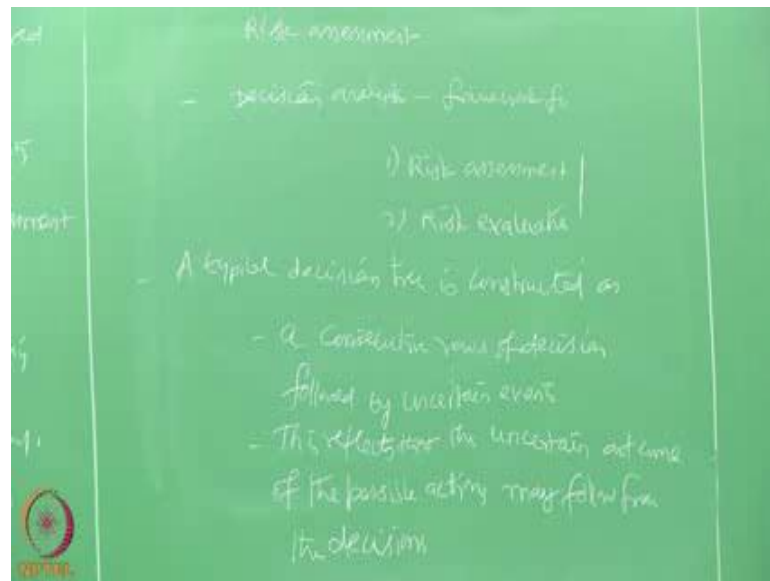 Risk assessment
- Decision analysis - framework for
1) Risk assessment
2) Risk evaluation
- A typical decision tree is constructed as
- a consecutive rows of decision
followed by uncertain event
- This reflects that the uncertain outcome
of the possible action may follow from
the decisions
NPTEL